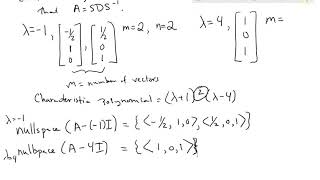 That A = SDS⁻¹.
λ=-1, [-1/2 1 0], [1/2 1 0] m=2, n=2 λ=4, [1 0 1] m=
m = number of vectors
Characteristic Polynomial = (λ+1)²(λ-4)
λ=-1
nullspace (A-(-1)I) = {<-1/2, 1, 0>, <1/2, 0, 1>}
nullspace (A-4I) = {<1, 0, 1>}